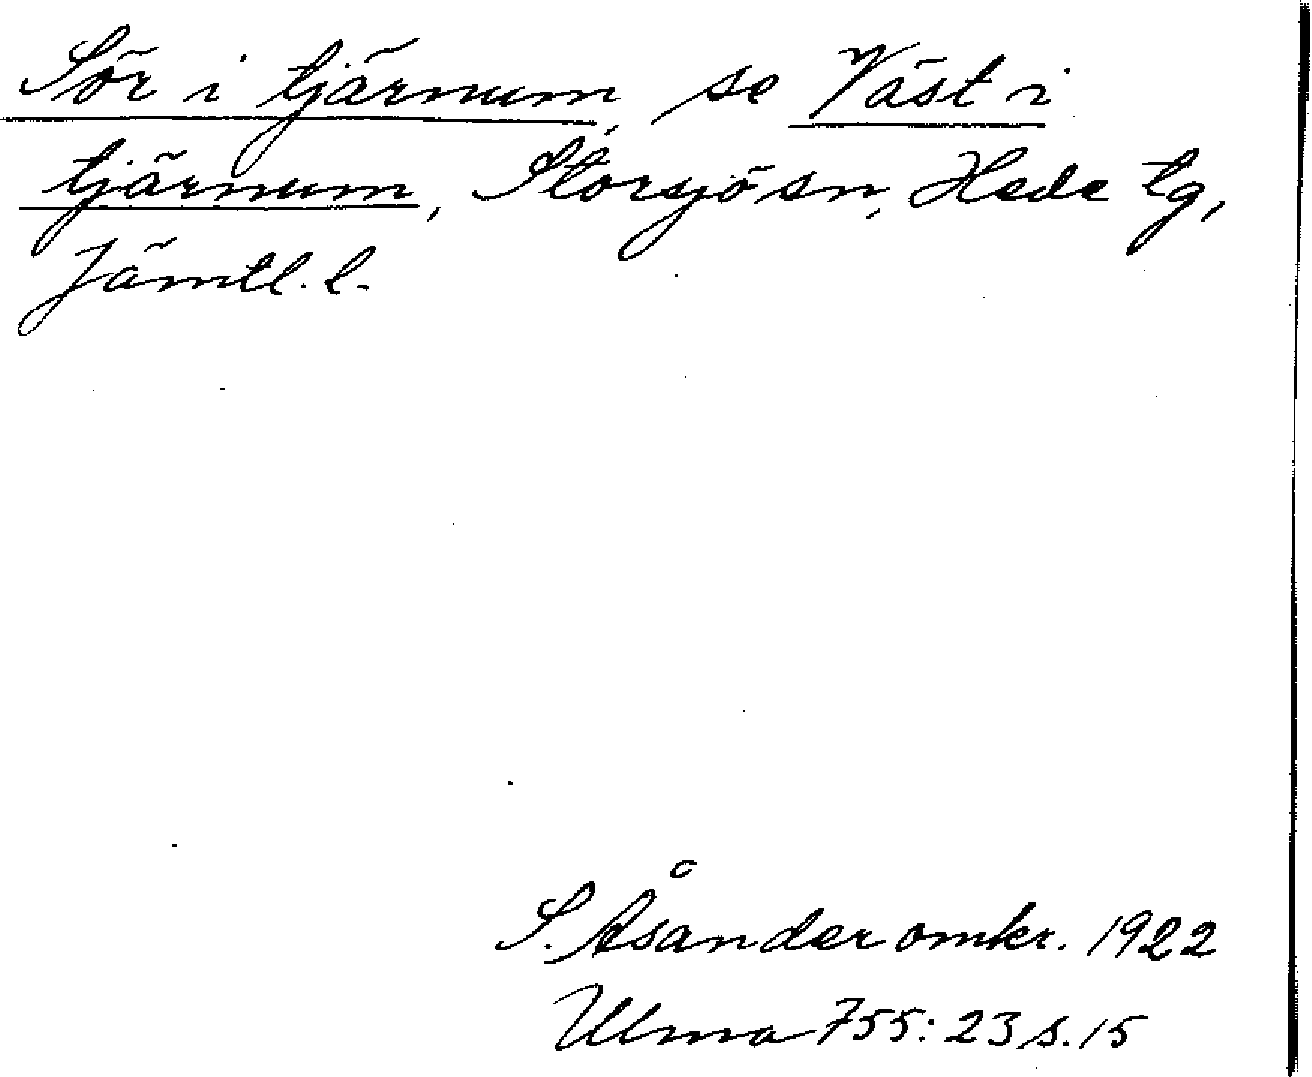 Sör i tjärnum, se Väst i
tjärnum, Storsjö sn, Hede tg,
Jämtl. l.
S. Åsander omkr. 1922
Ulma 755: 23 s. 15